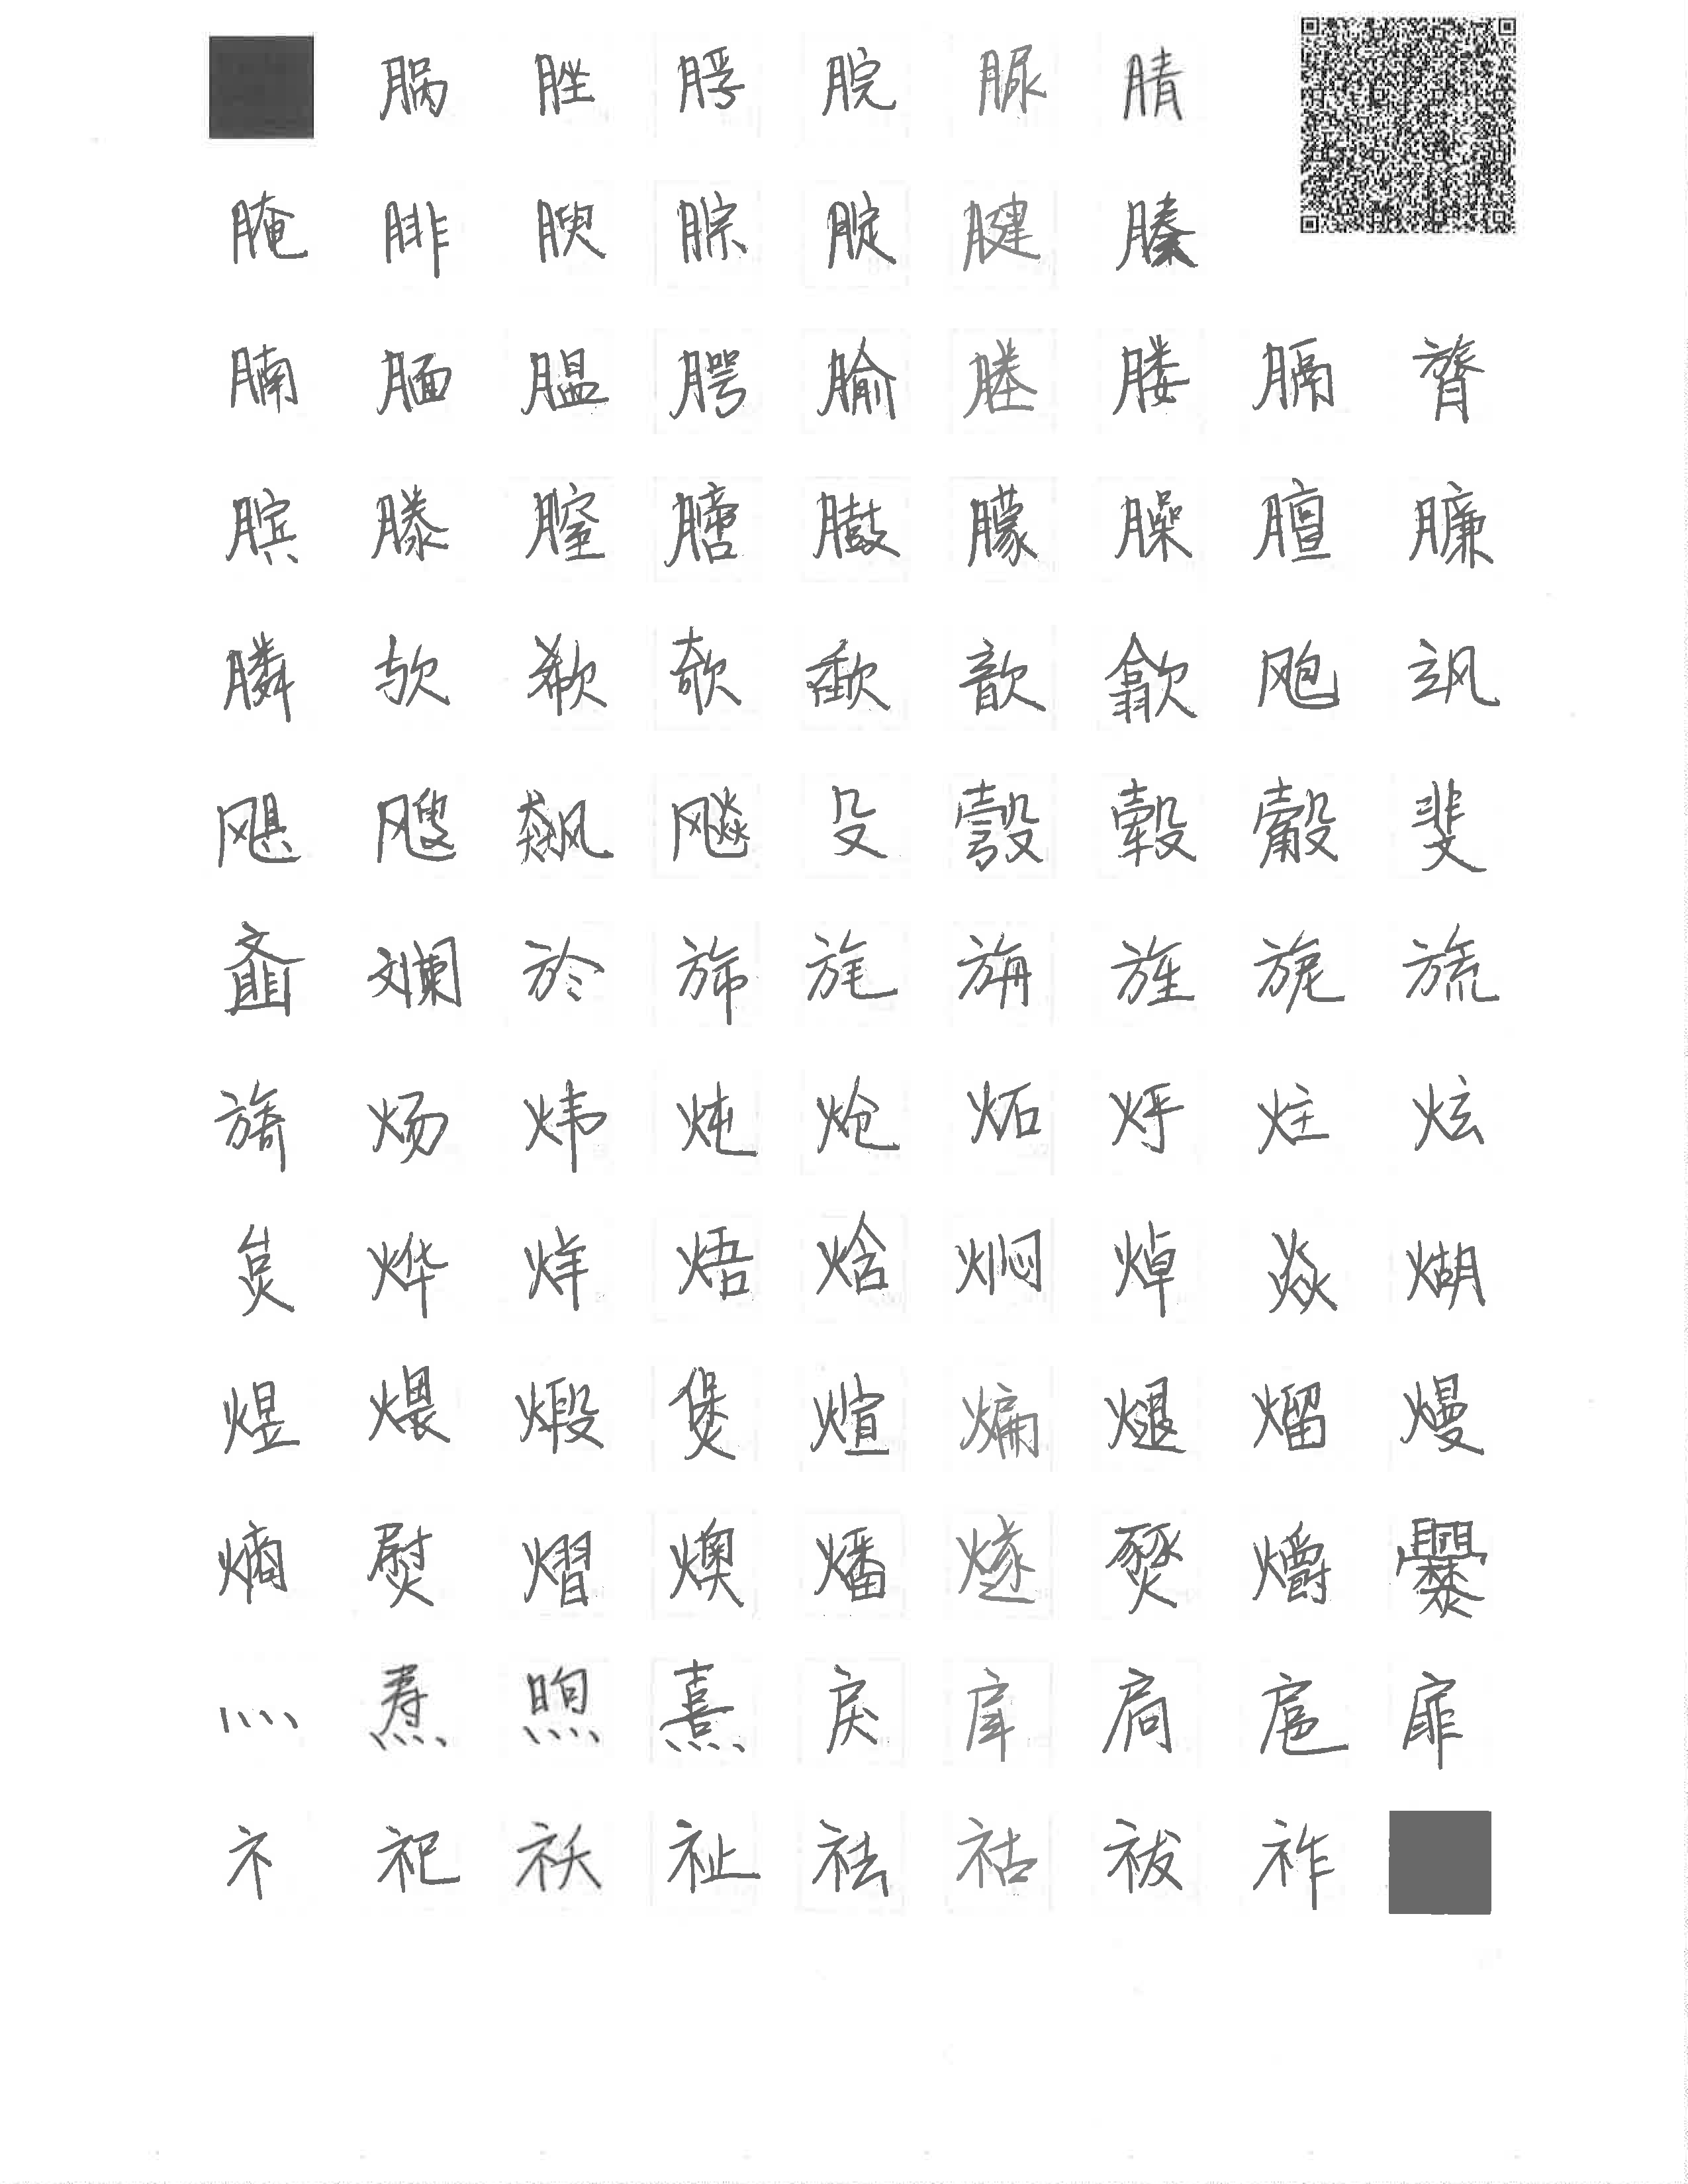 脶 脞 脬 脘 脲 腈
腌 腓 腴 腙 腚 腱 腠
腩 腼 腽 腭 腧 塍 媵 膈 膂
膑 滕 膣 膪 臌 朦 臊 膻 臁
膦 欤 欷 欹 歃 歆 歙 飑 飒
飓 飕 飙 飚 殳 彀 毂 觳 斐
齑 斓 於 旆 旄 旃 旌 旎 旒
旖 炀 炜 炖 炝 炻 烀 炷 炫
炱 烨 烊 焐 焓 焖 焯 焱 煳
煜 煨 煅 煲 煊 煸 煺 熘 熳
熵 熨 熠 燠 燔 燧 燹 爝 爨
灬 焘 煦 熹 戾 戽 扃 扈 扉
礻 祀 祆 祉 祛 祜 祓 祚